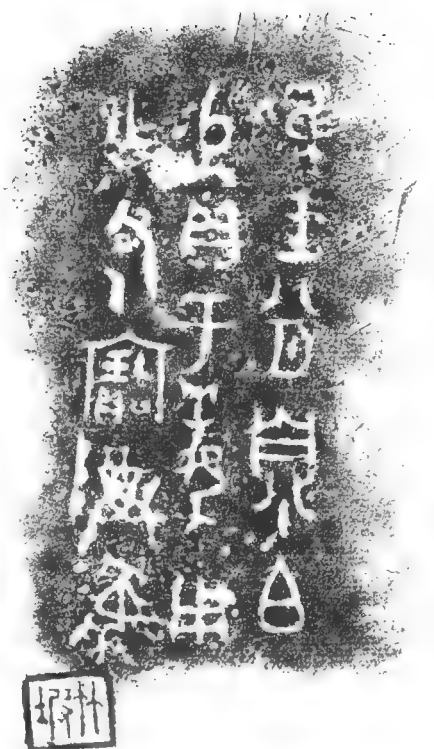 隹王八月息白
易貝于姜用
乍父乙寶尊彝